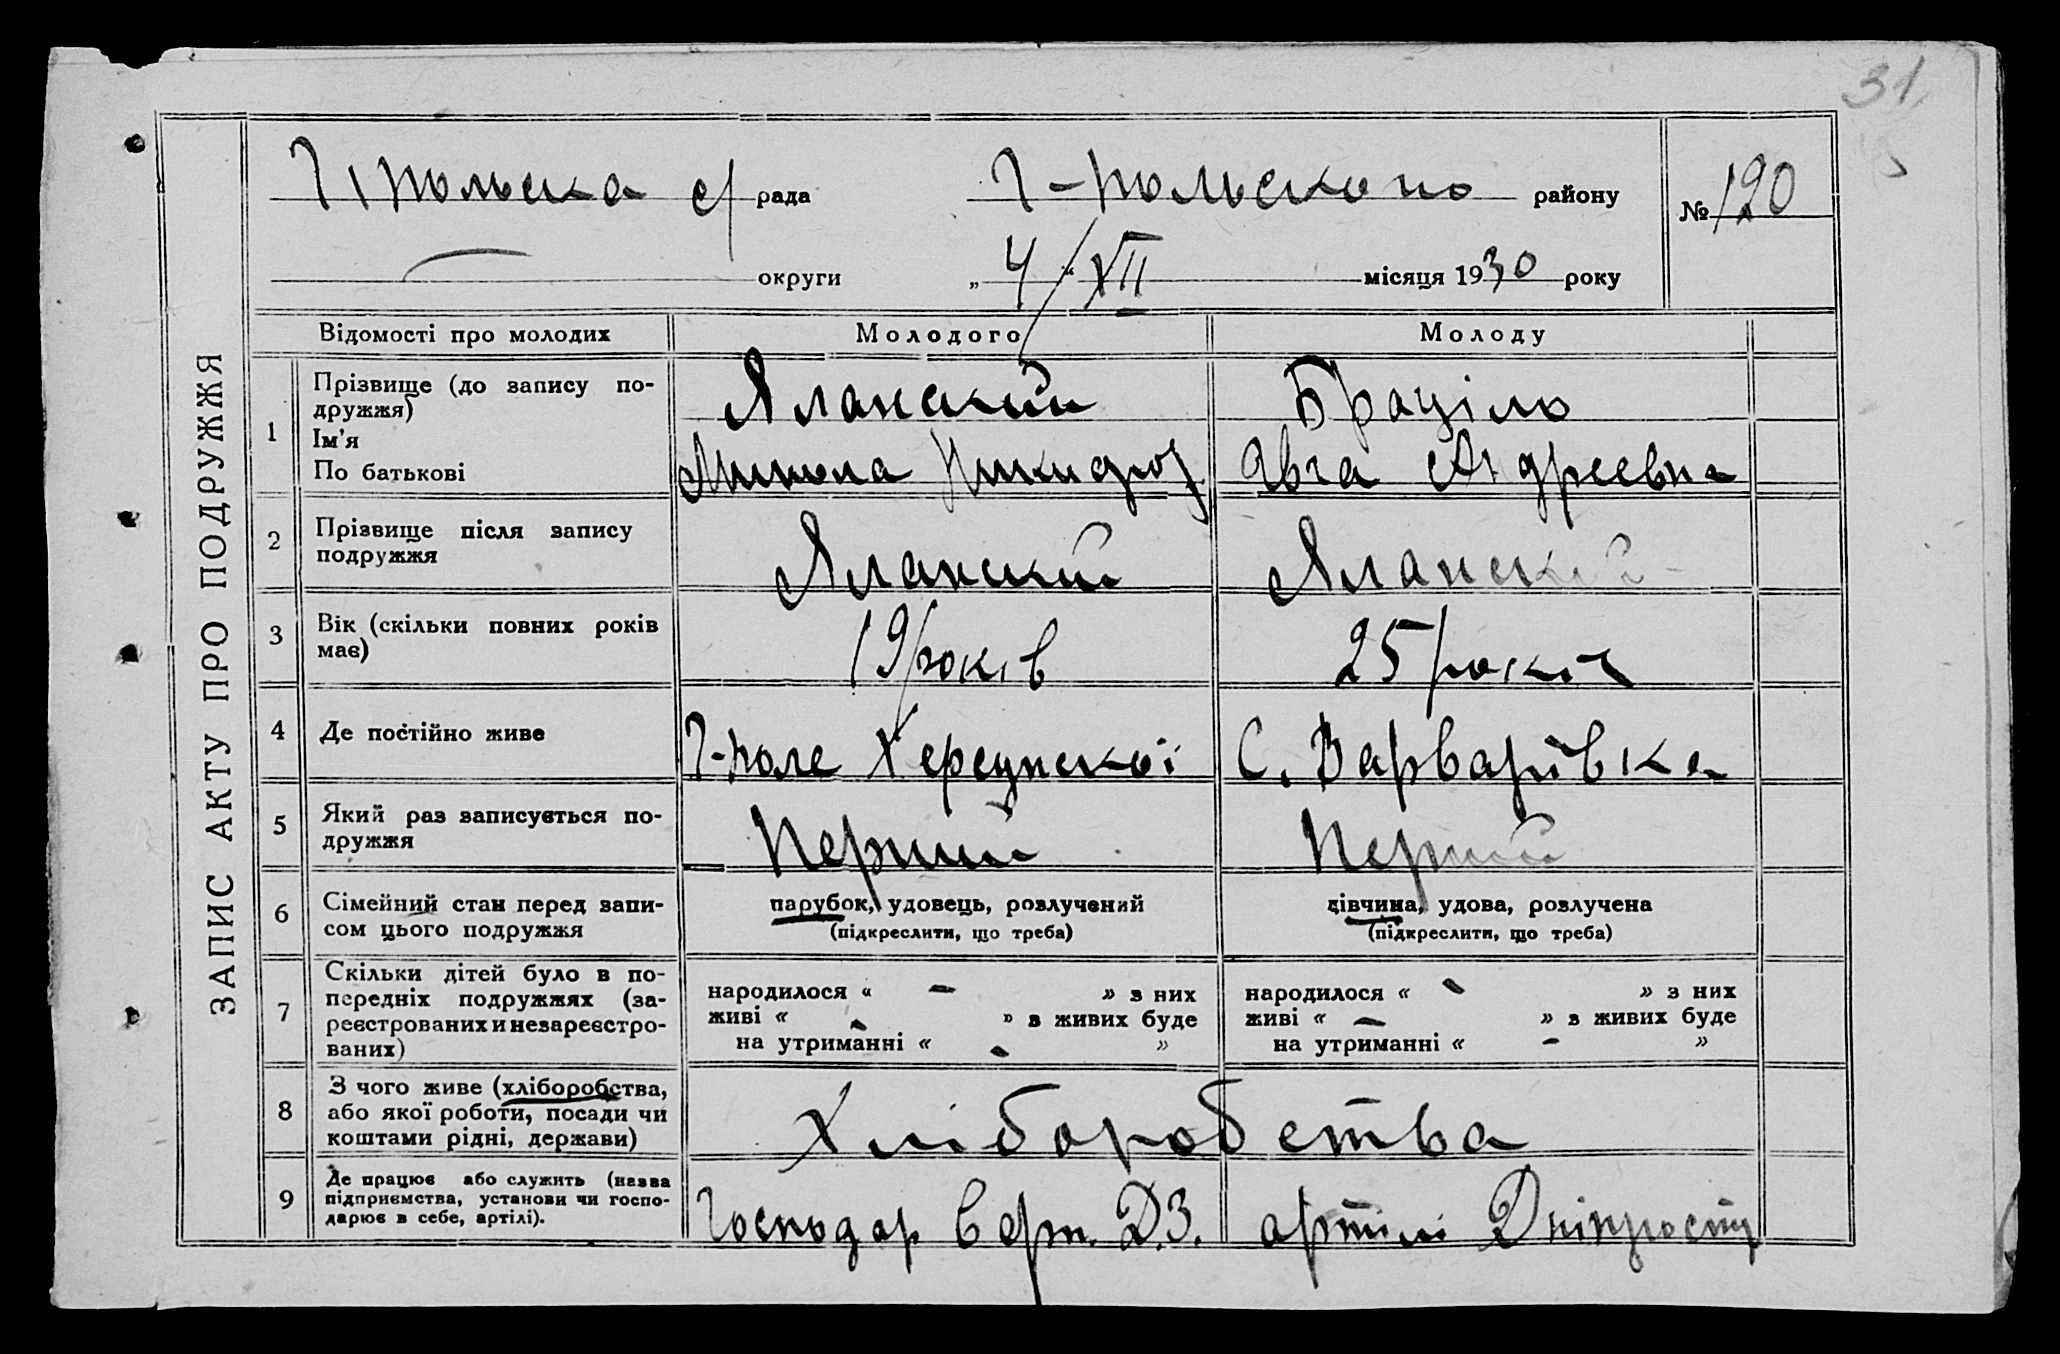 31
Г/польська с/рада Г-польського району
№ 120
округи „4“ XII місяця 1930 року
ЗАПИС АКТУ ПРО ПОДРУЖЖЯ
Відомості про молодих Молодого Молоду
1 Прізвище (до запису по-
дружжя) Яланский Браціло
Ім'я
По батькові Микола Авга Андреевна
2 Прізвище після запису
подружжя Яланский Яланский
3 Вік (скільки повних років
має) 19 років 25 років
4 Де постійно живе Г-поле Херсунської С. Варварівка
5 Який раз записується по-
дружжя Перший Перший
6 Сімейний стан перед запи-
сом цього подружжя
парубок, удовець, розлучений дівчина, удова, розлучена
(підкреслити, що треба) (підкреслити, що треба)
7 Скільки дітей було в по-
передніх подружжях (за-
реєстрованих и незареєстро-
ваних)
народилося « – » з них народилося « – » з них
живі « – » з живих буде живі « – » з живих буде
на утриманні « – » на утриманні « – »
8 З чого живе (хліборобства,
або якої роботи, посади чи
коштами рідні, держави)
Хліборобства
9 Де працює або служить (назва
підприємства, установи чи госпо-
дарює в себе, артілі).
Господар в арт. Д.З. артилі Дніпрост